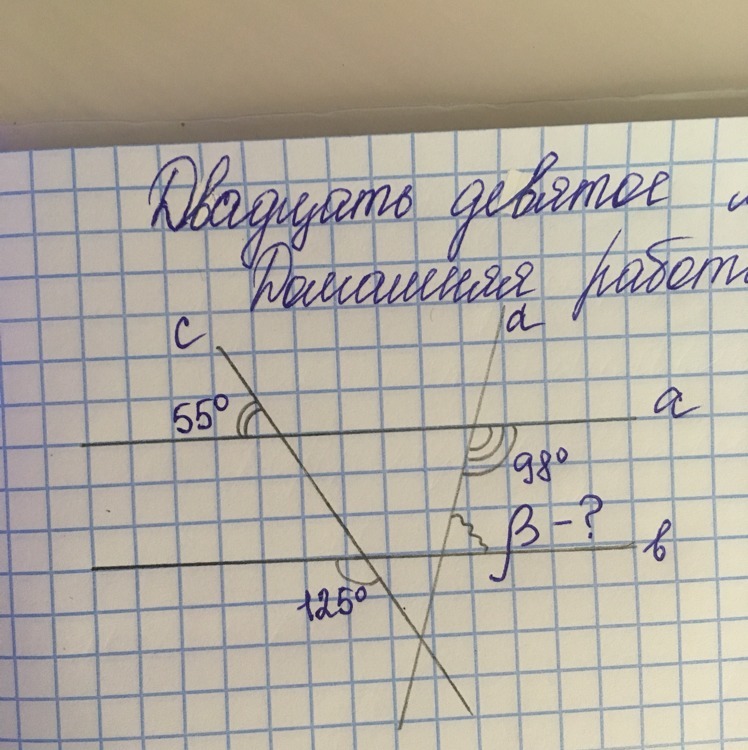 Двадцать девятое
Домашняя
c
d
55°
a
98°
β - ?
b
125°